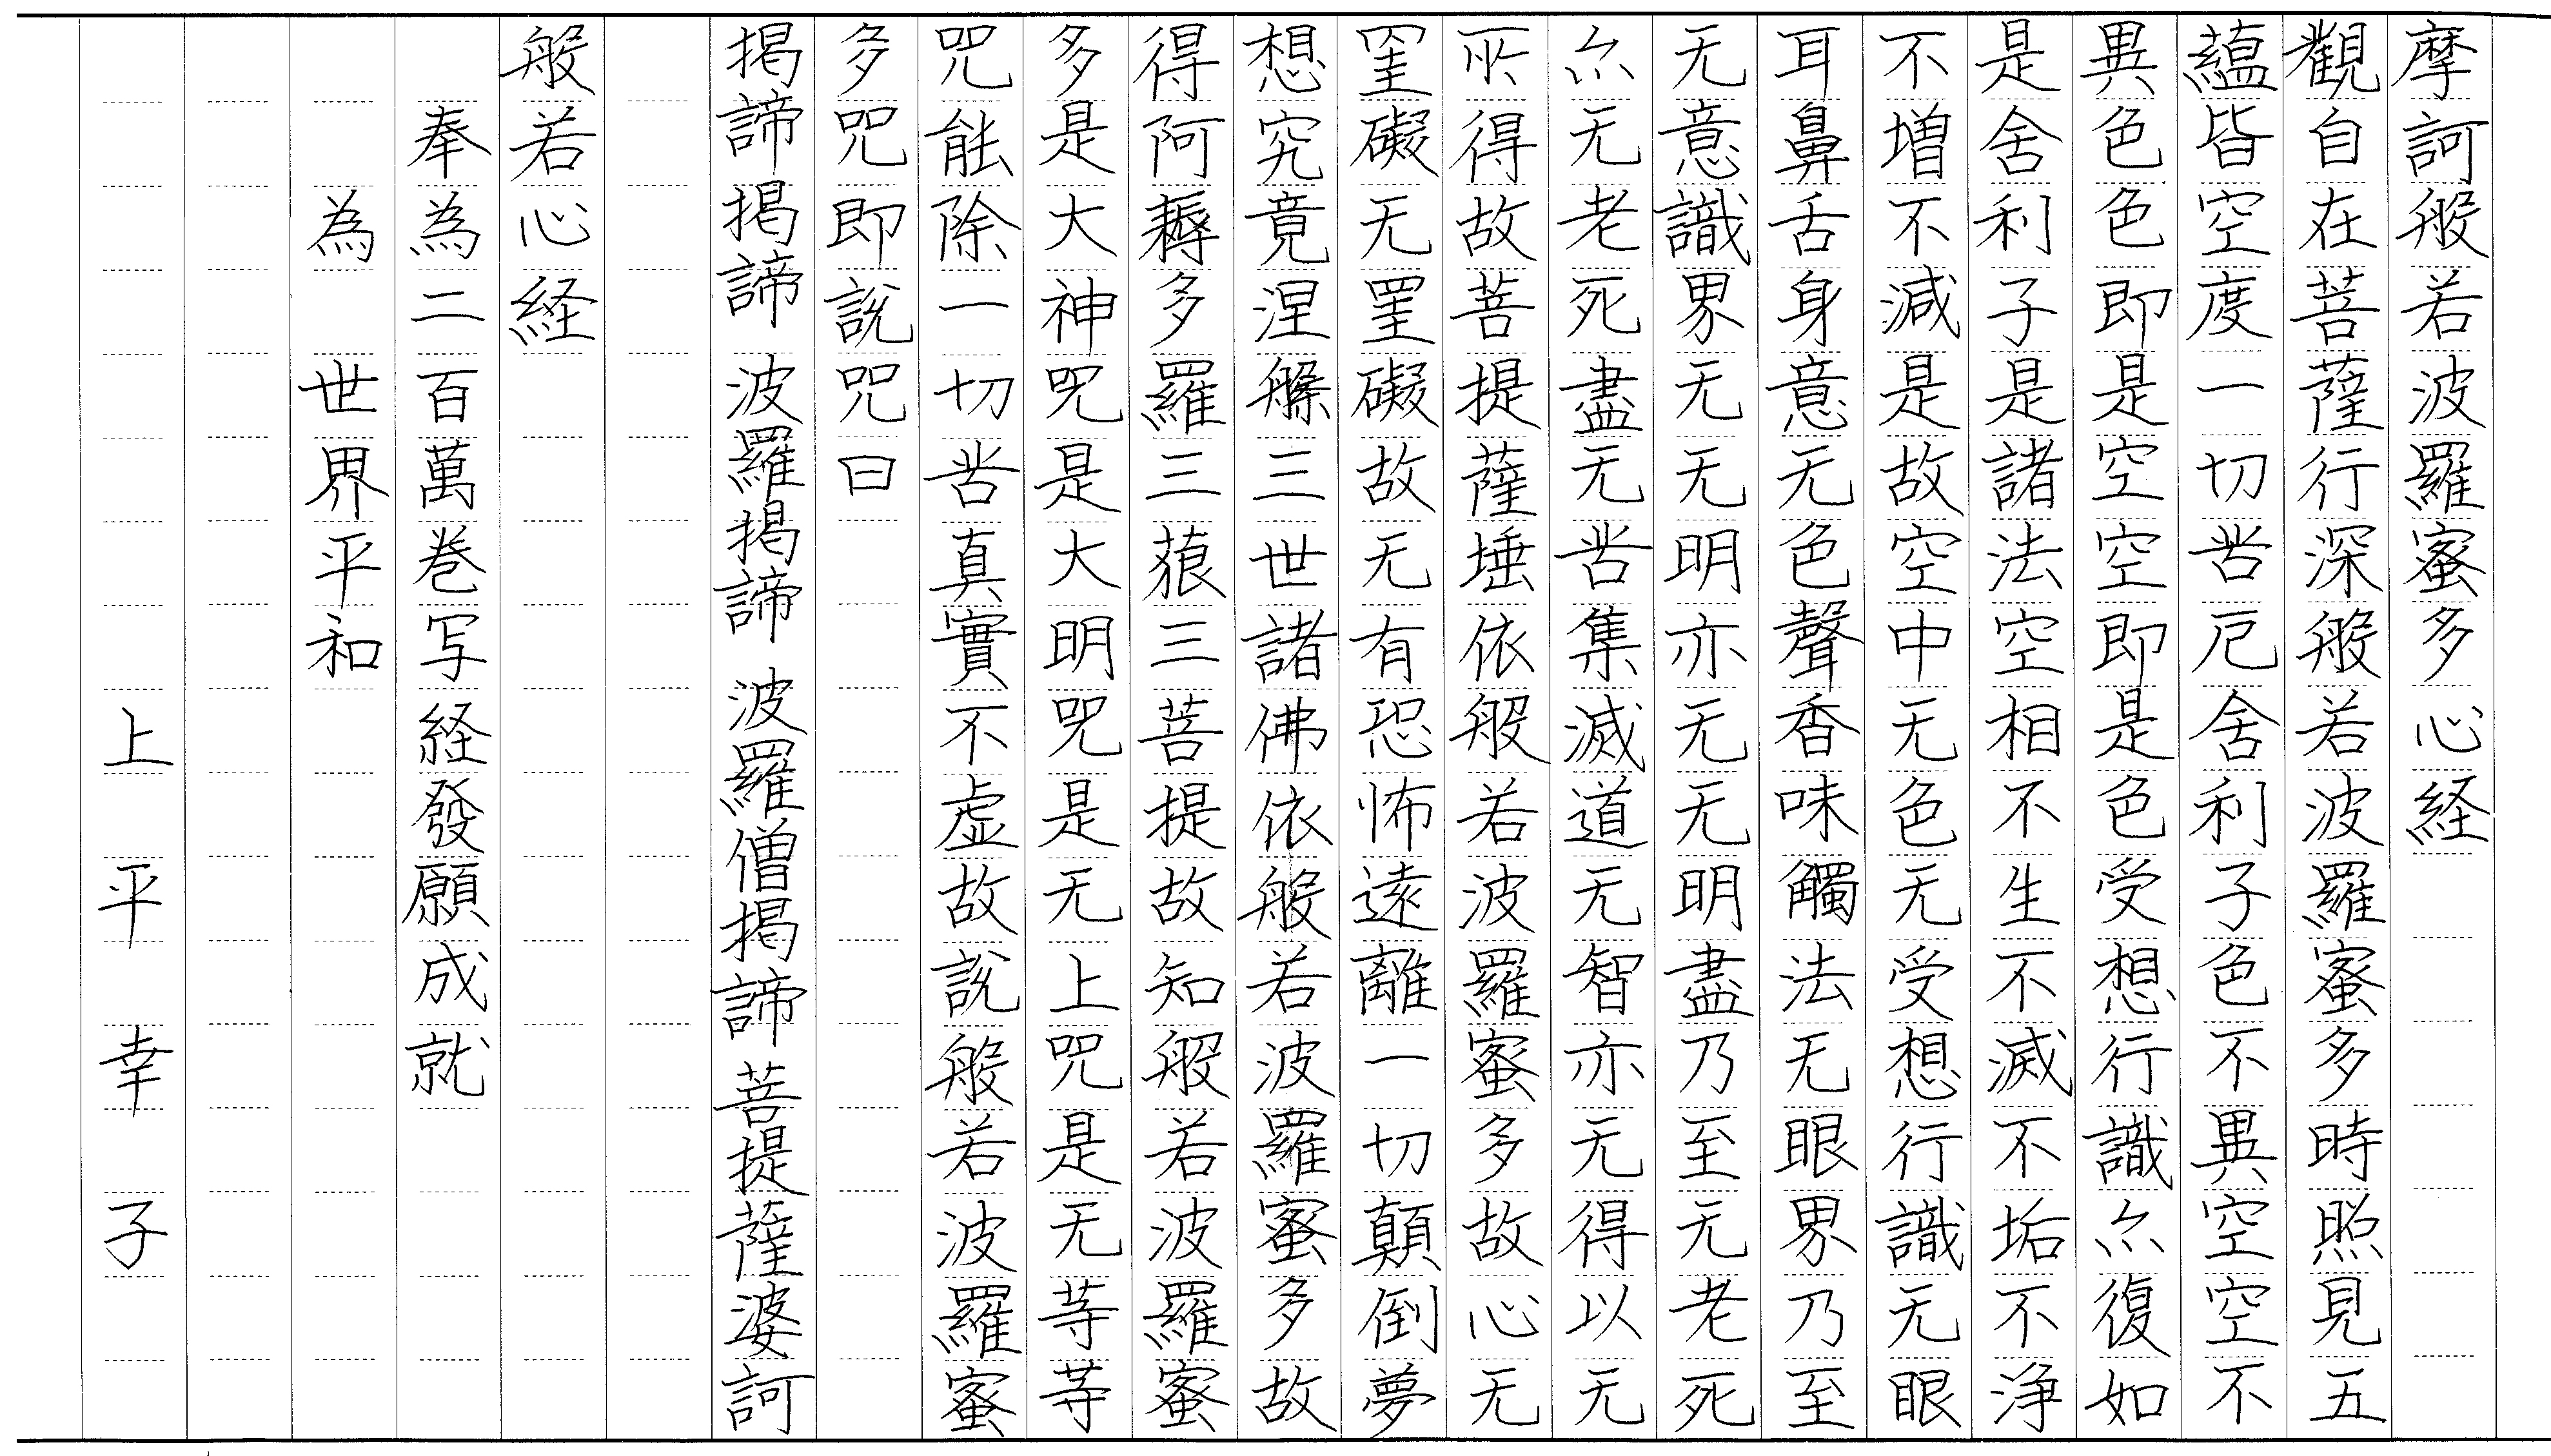 摩訶般若波羅蜜多心経
觀自在菩薩行深般若波羅蜜多時照見五
蘊皆空度一切苦厄舍利子色不異空空不
異色色即是空空即是色受想行識亦復如
是舍利子是諸法空相不生不滅不垢不浄
不増不減是故空中无色无受想行識无眼
耳鼻舌身意无色聲香味觸法无眼界乃至
无意識界无无明亦无无明盡乃至无老死
亦无老死盡无苦集滅道无智亦无得以无
所得故菩提薩埵依般若波羅蜜多故心无
罣礙无罣礙故无有恐怖遠離一切顛倒夢
想究竟涅槃三世諸佛依般若波羅蜜多故
得阿耨多羅三藐三菩提故知般若波羅蜜
多是大神咒是大明咒是无上咒是无等等
咒能除一切苦真實不虚故説般若波羅蜜
多咒即説咒曰
掲諦掲諦 波羅掲諦 波羅僧掲諦 菩提薩婆訶
般若心経
奉為二百萬巻写経發願成就
為 世界平和
上平幸子